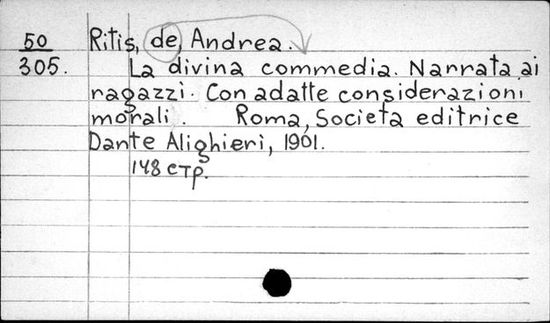 50 Ritis, de, Andrea.
305. La divina commedia. Narrata ai
ragazzi. Con adatte considerazioni
morali. Roma, Societa editrice
Dante Alighieri, 1901.
148 стр.